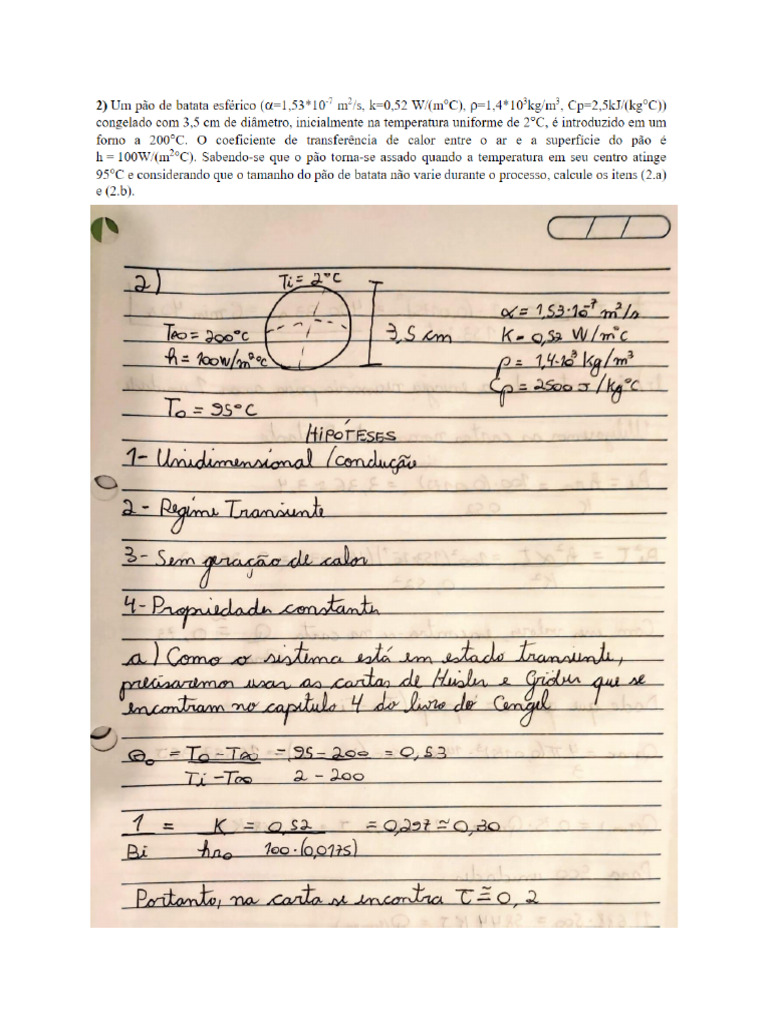 2) Um pão de batata esférico (α=1,53*10⁻⁷ m²/s, k=0,52 W/(m°C), ρ=1,4*10³kg/m³, Cp=2,5kJ/(kg°C))
congelado com 3,5 cm de diâmetro, inicialmente na temperatura uniforme de 2°C, é introduzido em um
forno a 200°C. O coeficiente de transferência de calor entre o ar e a superfície do pão é
h = 100W/(m²°C). Sabendo-se que o pão torna-se assado quando a temperatura em seu centro atinge
95°C e considerando que o tamanho do pão de batata não varie durante o processo, calcule os itens (2.a)
e (2.b).
2)
Ti = 2°C
T∞ = 200°C
h = 100W/m²°C
3,5 cm
α = 1,53·10⁻⁷ m²/s
K = 0,52 W/m°C
ρ = 1,4·10³ Kg/m³
Cp = 2500 J/kg°C
To = 95°C
HIPÓTESES
1- Unidimensional /condução
2 - Regime Transiente
3- Sem geração de calor
4- Propriedades constantes
a) Como o sistema está em estado transiente,
precisaremos usar as cartas de Heisler e Gröber que se
encontram no capitulo 4 do livro do Cengel
θo = To - T∞ = 95 - 200 = 0,53
Ti - T∞ 2 - 200
1 = K = 0,52 = 0,297 ≅ 0,30
Bi hro 100·(0,0175)
Portanto, na carta se encontra τ ≅ 0,2